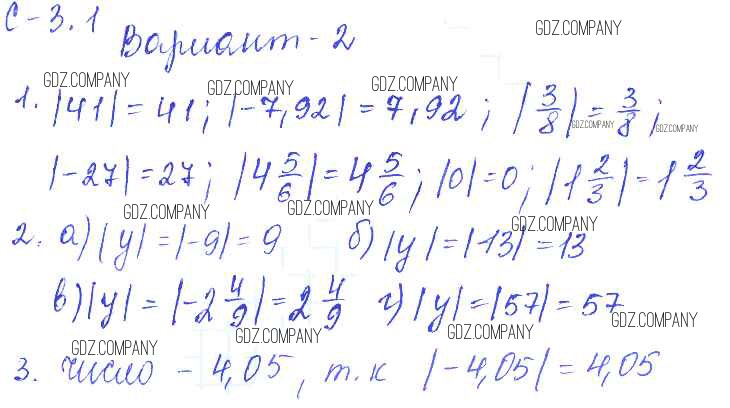 С-3.1
GDZ.COMPANY
Вариант-2
GDZ.COMPANY GDZ.COMPANY GDZ.COMPANY
1. |41| = 41; |-7,92| = 7,92; |3/8| = 3/8;
GDZ.COMPANY GDZ.COMPANY
|-27| = 27; |4 5/6| = 4 5/6; |0| = 0; |1 2/3| = 1 2/3
GDZ.COMPANY GDZ.COMPANY GDZ.COMPANY
2. а) |y| = |-9| = 9 б) |y| = |-13| = 13
в) |y| = |-2 4/9| = 2 4/9 г) |y| = |57| = 57
GDZ.COMPANY GDZ.COMPANY GDZ.COMPANY GDZ.COMPANY
3. число -4,05, т.к |-4,05| = 4,05